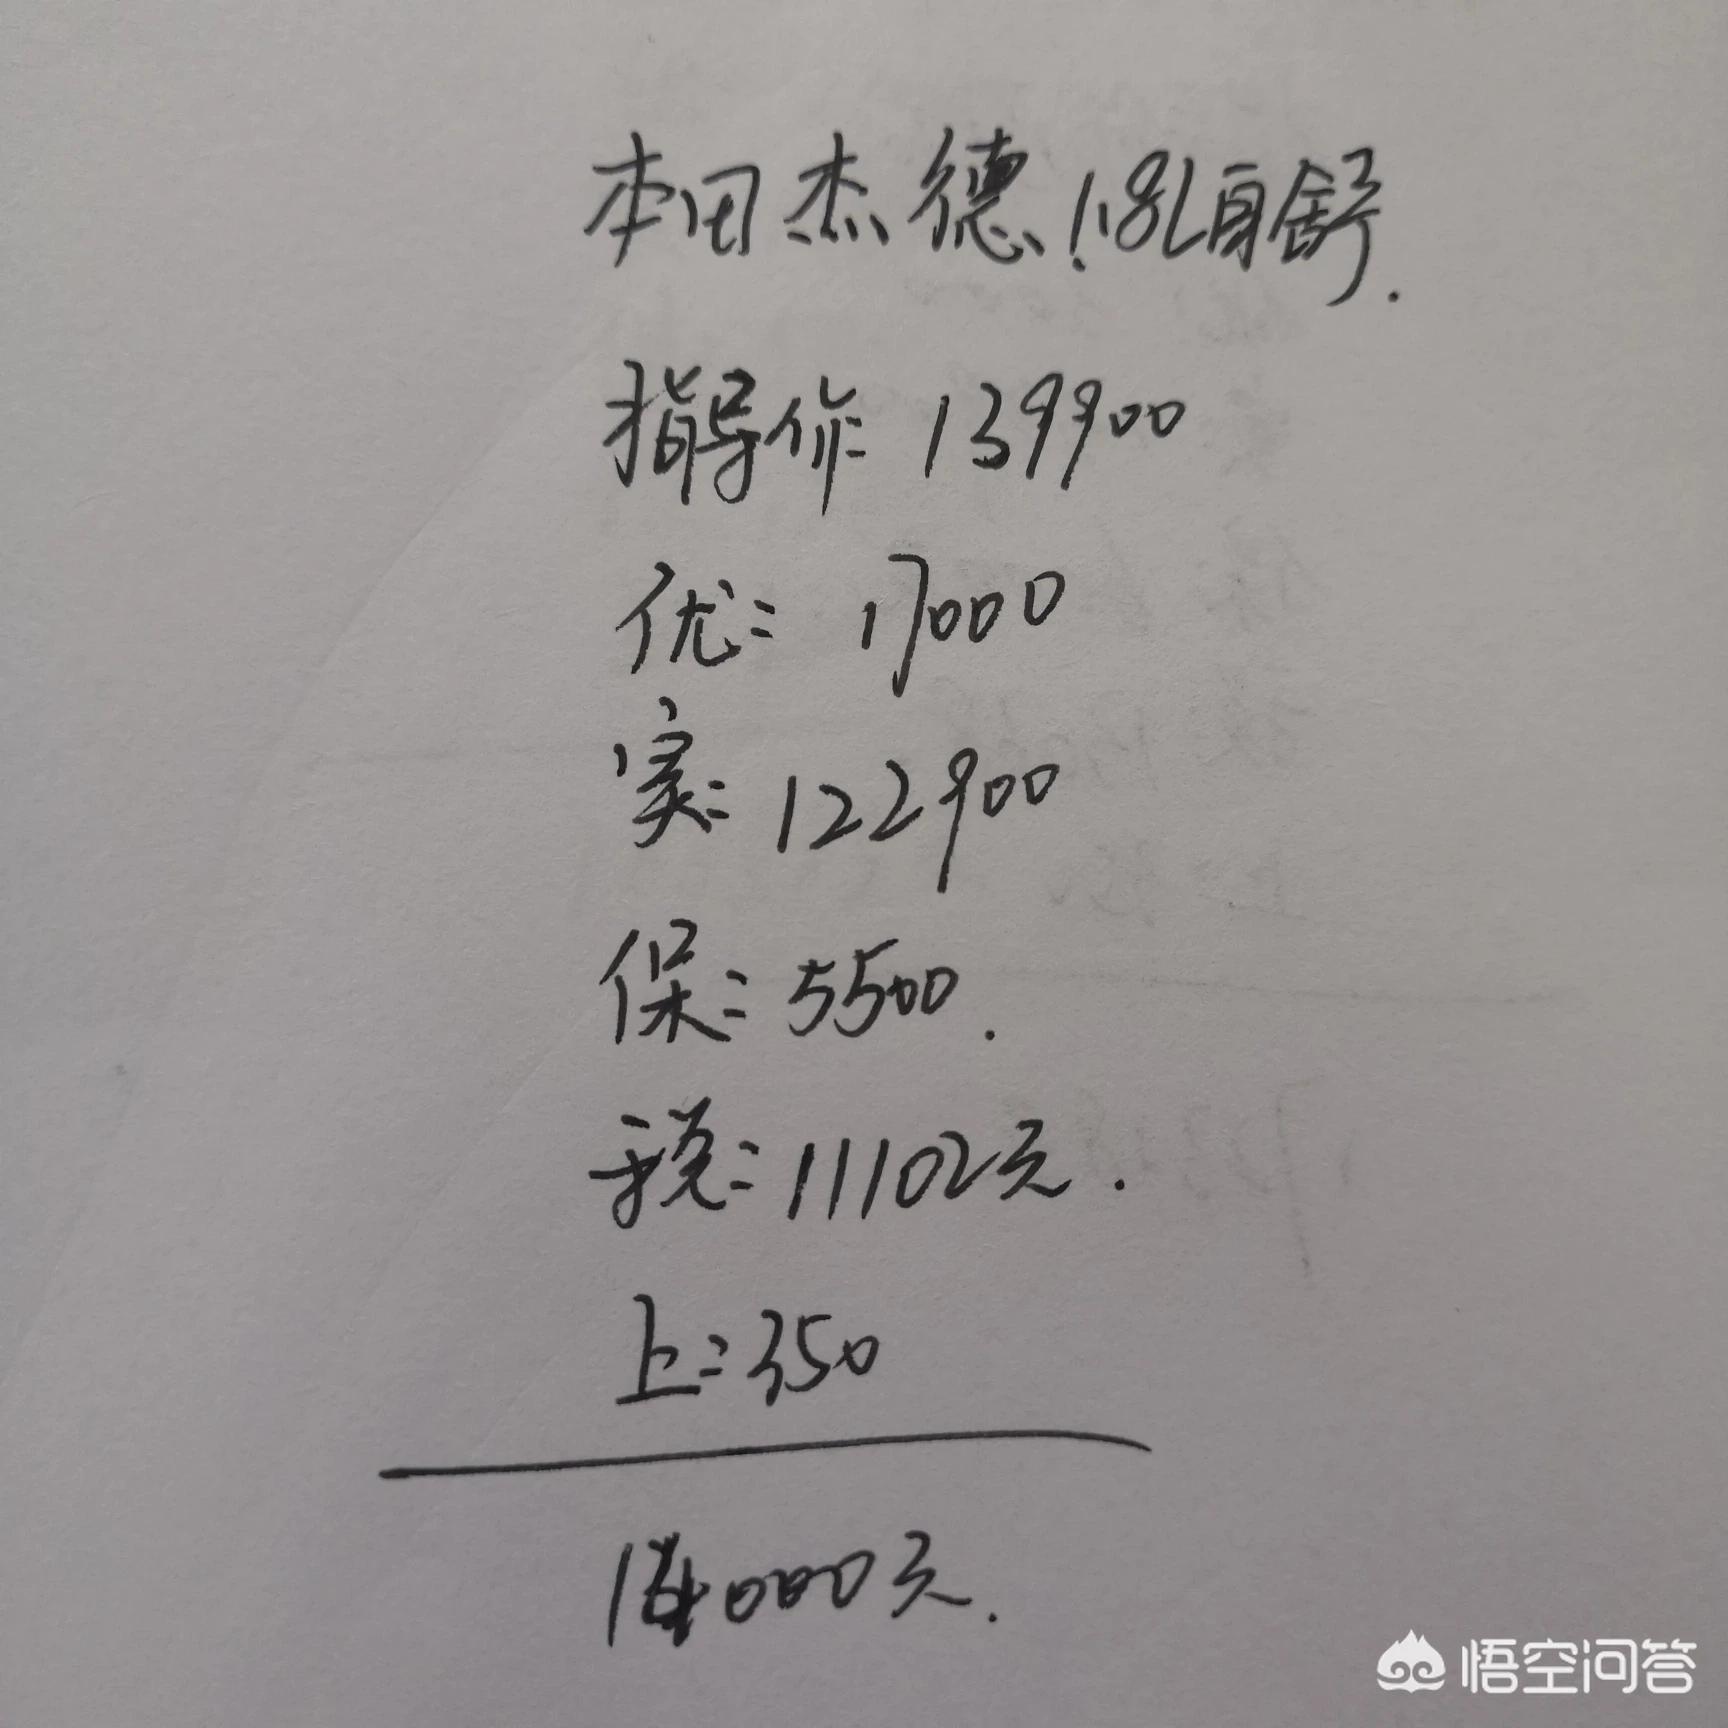 本田杰德1.8L自舒.
指导价:139900
优:17000
实:122900
保:5500.
税:11102元.
上:350
14000元.
悟空问答